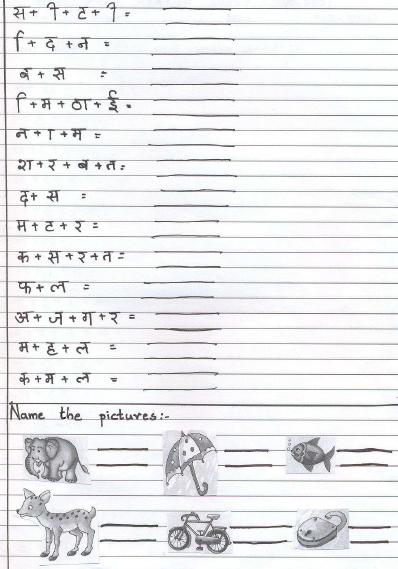 स + ी + ट + ी =
ि + द + न =
ब + स =
ि + म + ठा + ई =
न + ा + म =
श + र + ब + त =
द + स =
म + ट + र =
क + स + र + त =
फ + ल =
अ + ज + ग + र =
म + ह + ल =
क + म + ल =
Name the pictures:-